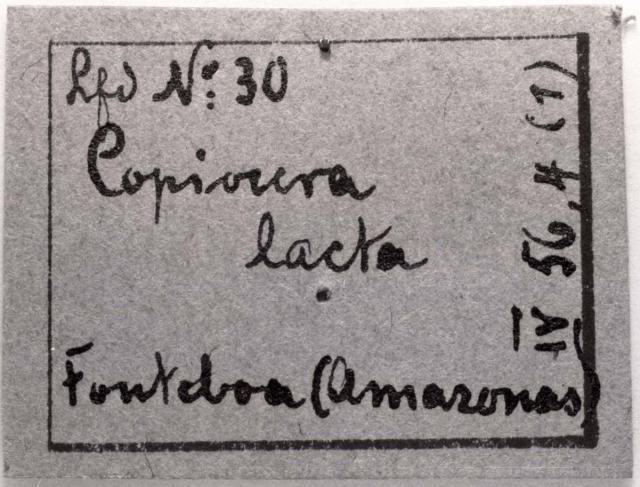 Lfd Nº: 30
Copiocera
lacta
Fonteboa (Amazonas)
IV 56, 4 (1)